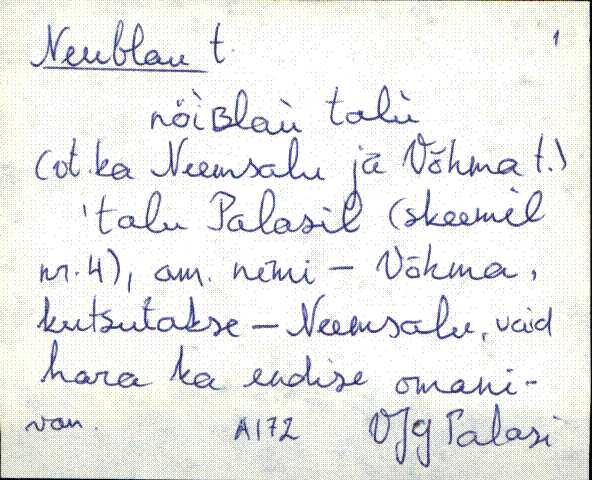 Neublau t. 1
nöiʙlaù talù
(vt. ka Neemsalu jä Võhma t.)
'talu Palasil (skeemil
nr. 4), am. nimi – Võhma,
kutsutakse – Neemsalu, vaid
harva ka endise omani-
A172 VJg Palasi